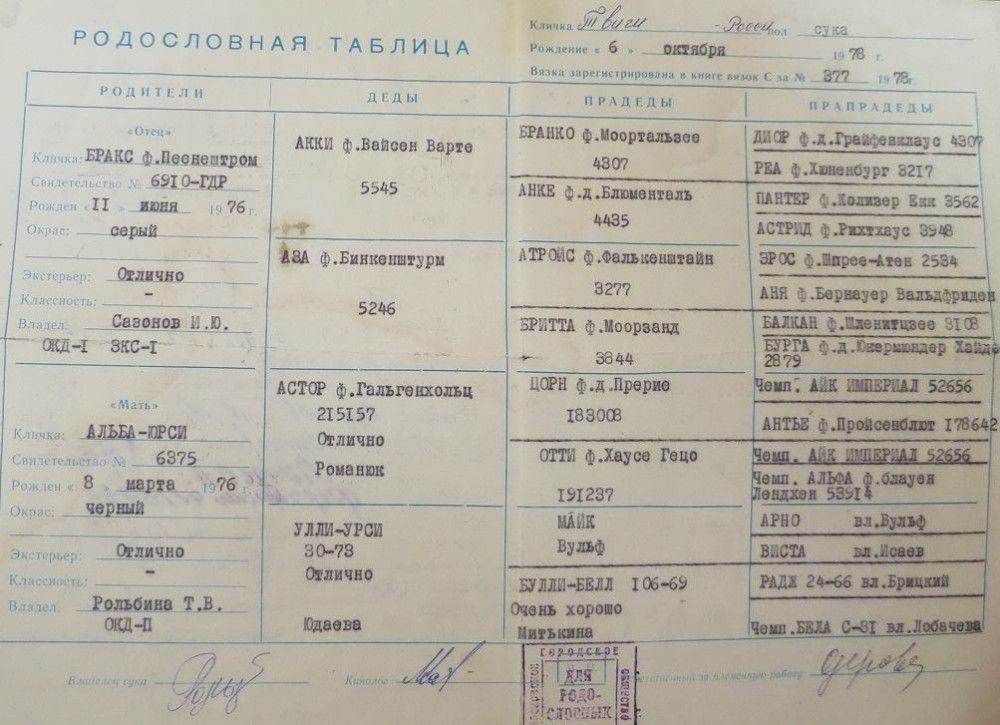 РОДОСЛОВНАЯ ТАБЛИЦА
Кличка Твиги - Росси пол сука
Рождение « 6 » октября 1978 г.
Вязка зарегистрирована в книге вязок С за № 377 1978г.
РОДИТЕЛИ
«Отец»
Кличка: БРАКС ф.Пеенештром
Свидетельство № 6910-ГДР
Рожден «II» июня 1976 г.
Окрас: серый
Экстерьер: Отлично
Классность: -
Владел. Сазонов И.Ю.
ОКД-I ЗКС-I
«Мать»
Кличка: АЛЬБА-ЮРСИ
Свидетельство № 6375
Рожден « 8 марта 1976 г.
Окрас: черный
Экстерьер: Отлично
Классность: -
Владел. Рольбина Т.В.
ОКД-П
ДЕДЫ
АККИ ф.Вайсен Варте
5545
АЗА ф.Бинкенштурм
5246
АСТОР ф.Гальгенхольц
215157
Отлично
Романюк
УЛЛИ-УРСИ
30-73
Отлично
Юдаева
ПРАДЕДЫ
БРАНКО ф.Моортальзее
4307
АНКЕ ф.д.Блюменталь
4435
АТРОЙС ф.Фалькенштайн
3277
БРИТТА ф.Моорзанд
3844
ЦОРН ф.д.Прерие
183008
ОТТИ ф.Хаусе Гецо
191237
МАЙК
Вульф
БУЛЛИ-БЕЛЛ 106-69
Очень хорошо
Митькина
ПРАПРАДЕДЫ
ДИОР ф.д.Грайфенклаус 4307
РЕА ф.Хюненбург 3217
ПАНТЕР ф.Колизер Екк 3562
АСТРИД ф.Рихтхаус 3948
ЭРОС ф.Шпрее-Атен 2534
АНЯ ф.Бернауер Вальдфриден
БАЛКАН ф.Шленитцзее 3108
БУРГА ф.д.Юкермюндер Хайде
2879
Чемп. АЙК ИМПЕРИАЛ 52656
АНТЬЕ ф.Пройсенблют 178642
Чемп. АЙК ИМПЕРИАЛ 52656
Чемп. АЛЬФА ф.блауен
Лендхен 53914
АРНО вл.Вульф
ВИСТА вл.Исаев
РАДЖ 24-66 вл.Брицкий
Чемп.БЕЛА С-31 вл.Лобачева
Владелец сука
Кинолог
ответственный за племенную работу
ГОРОДСКОЕ
ОБЩЕСТВО
ДЛЯ
РОДО-
СЛОВНЫХ